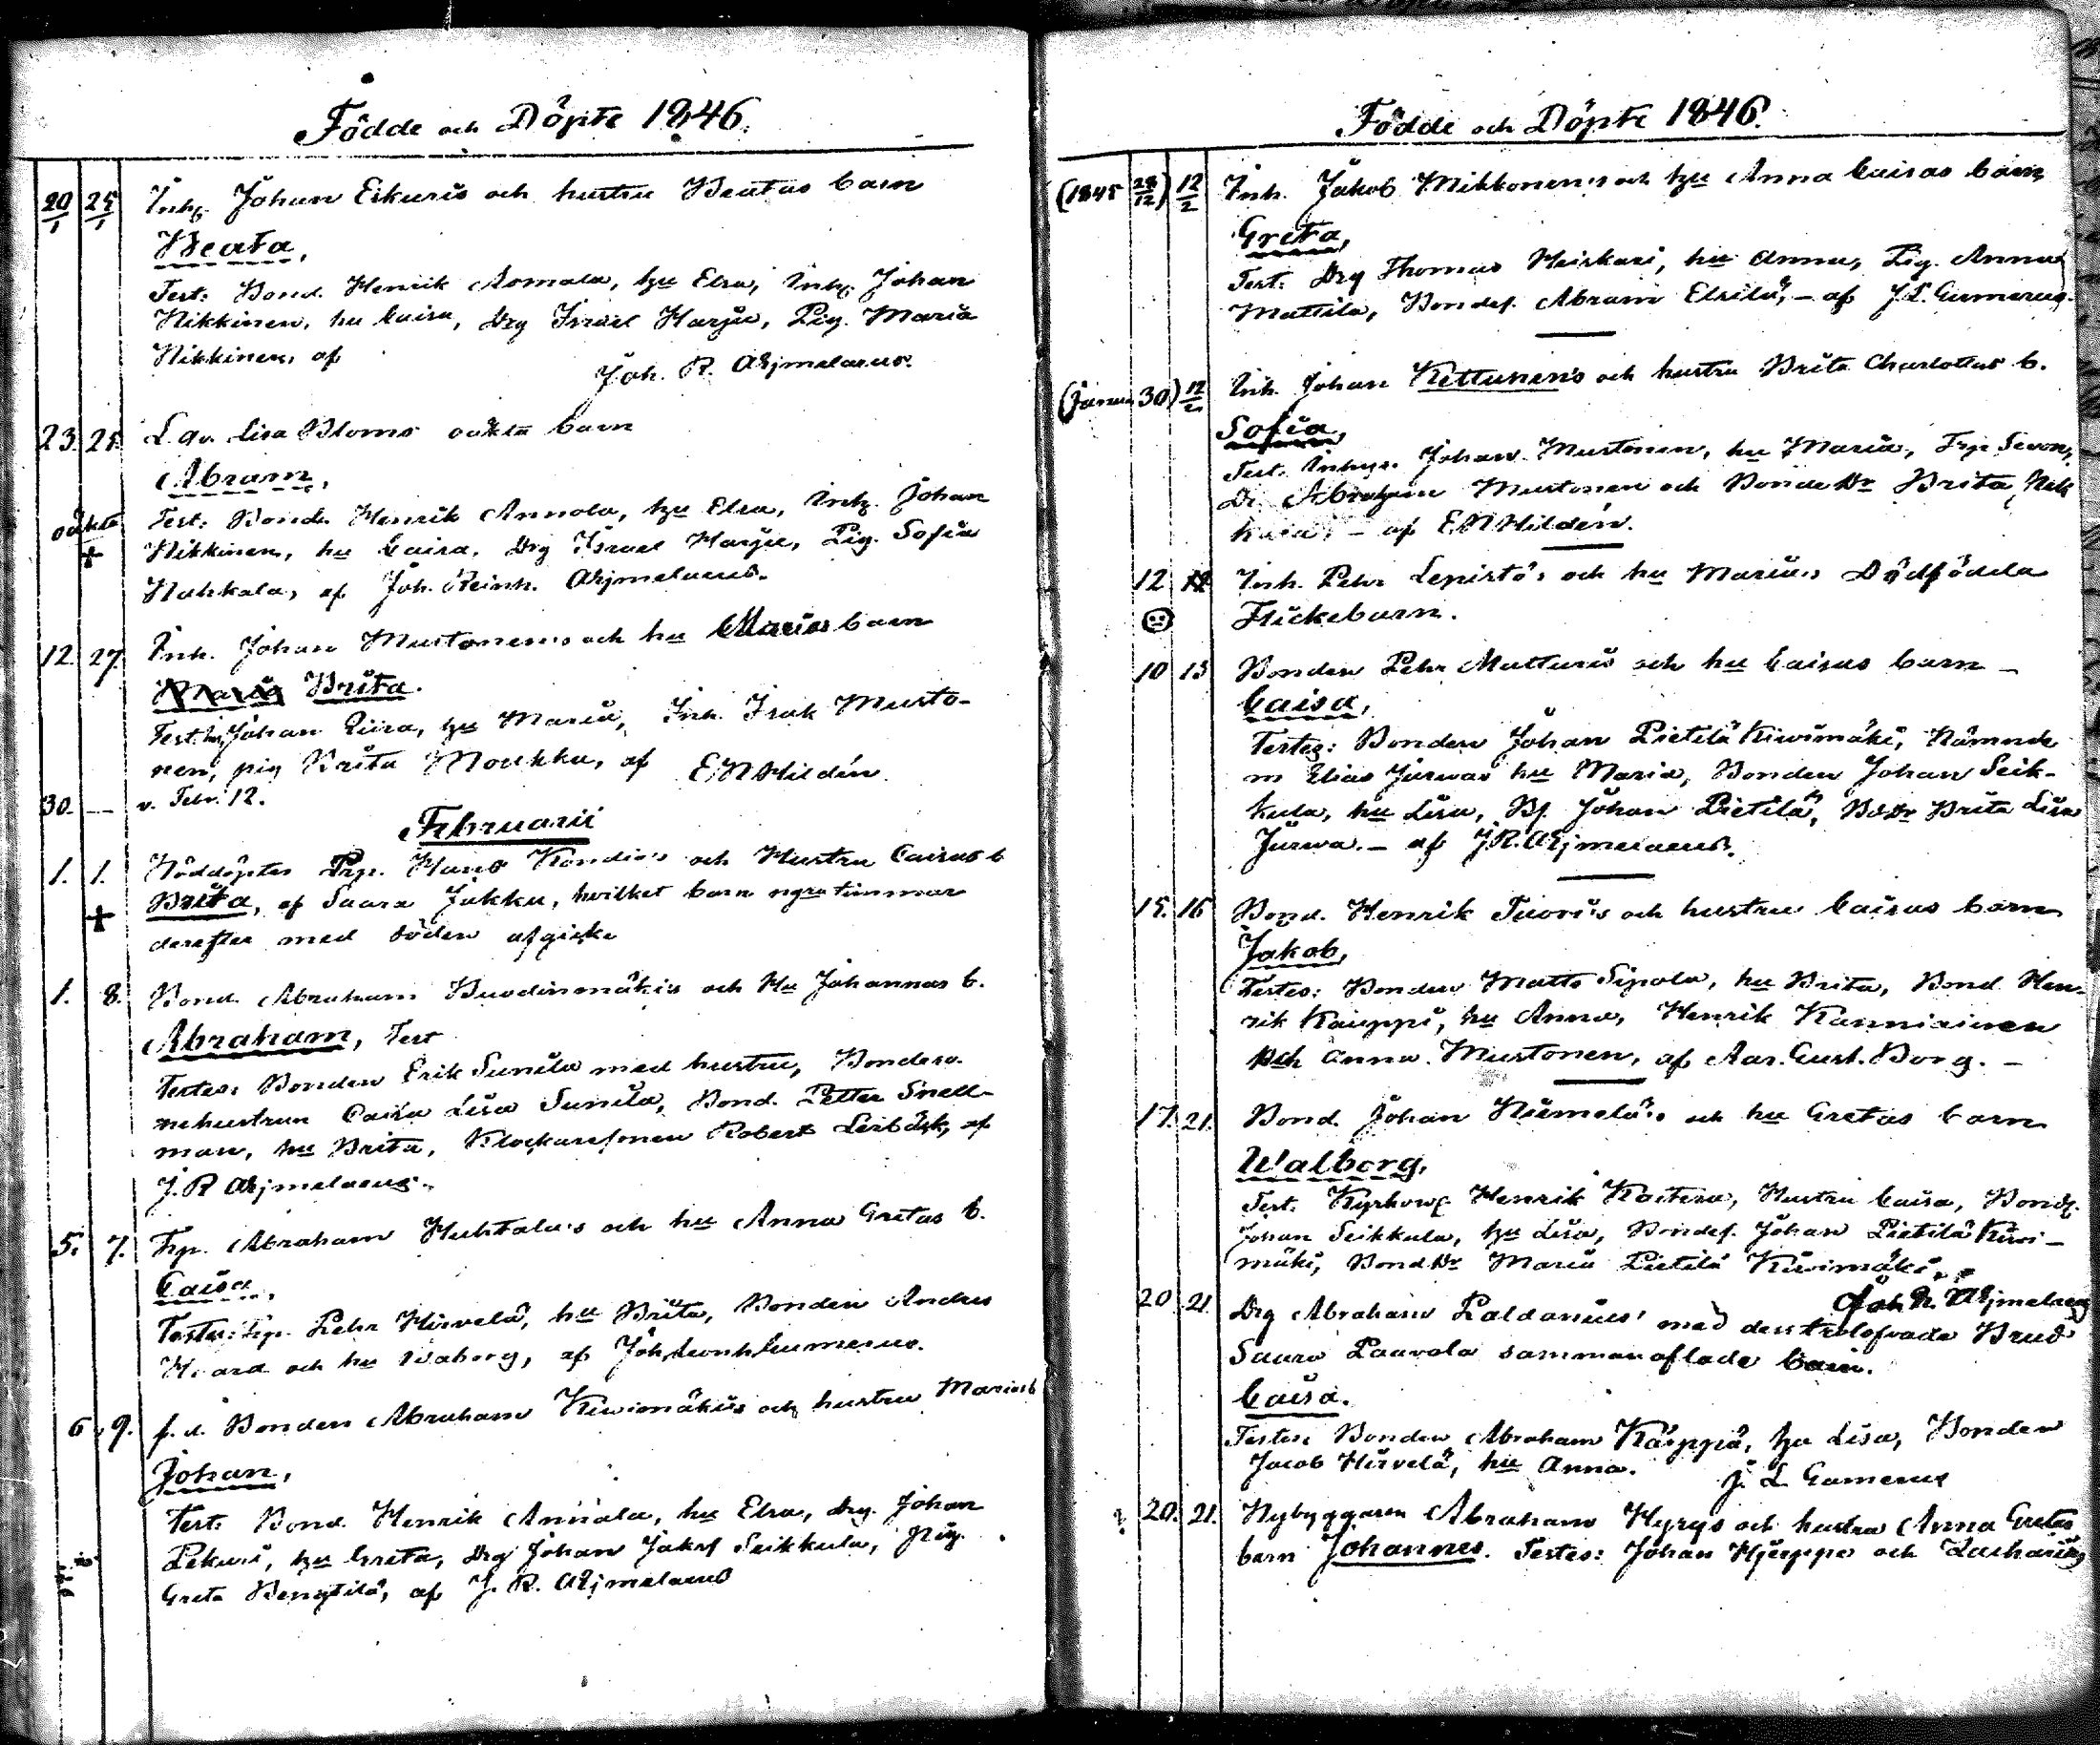 Födde och Döpte 1846.
20/1 25/1 Inh. Johan Eskuris och hustru Beatas barn
Beata,
Test: Bond. Henrik Annala, hu Elsa, Inh. Johan
Nikkinen, hu Caisa, Drg Israel Harju, Pig. Maria
Nikkinen, af
Joh. R. Ahjmelaeus.
23. 25. Lisa Bloms oäkta barn
Abram,
oäkta Test: Bond. Henrik Annala, hu Elsa, Inh. Johan
+ Nikkinen, hu Caisa, Drg Israel Harju, Pig. Sofia
Nahkala, af Joh. Reinh. Ahjmelaeus.
12. 27. Inh. Johan Mustonens och hu Marias barn
Maria Brita.
Test: Johan Piira, hu Maria, Inh. Isak Musto-
nen, pig Brita Moukka, af E N Hildén
30. — v. Febr. 12.
Februarii
1. 1. Nöddöptes Trp. Hans Kondio's och Hustru Caisas b
+ Brita, af Saara Jukku, hvilket barn ngra timmar
derefter med döden afgick
1. 8. Bond. Abraham Buodinmäkis och Hu Johannas b.
Abraham, Test
Testes: Bonden Erik Sunila med hustru, Bondeso-
nehustrun Caisa Lisa Sunila, Bond. Petter Snell-
man, hu Brita, Klockaresonen Robert Leibäck, af
J. R Ahjmelaeus.
5. 7. Trp. Abraham Huhtala's och hu Anna Gretas b.
Caisa,
Testes: Trp. Pehr Hirvelä, hu Brita, Bonden Andres
och hu Walborg, af Joh. Leonh. Gumerus.
6 9. f. d. Bonden Abraham Kiwimäkis och hustru Marias b
Johan,
Test: Bond. Henrik Annala, hu Elsa, Drg. Johan
Pekuri, hu Greta, Drg Johan Jakof Seikkula, Pig.
Greta Bengtilä, af J. R. Ahjmelaeus
Födde och Döpte 1846.
(1845 28/12) 12/2 Inh. Jakob Mikkonen's och hu Anna Caisas barn
Greta,
Test: Drg Thomas Heiskari, hu Anna, Pig. Anna
Mattila, Bondes. Abram Elsilä, — af J. L. Gumerus.
(Januar. 30) 12/2 Inh. Johan Kettunen's och hustru Brita Charlottas b.
Sofia,
Test. Inhys. Johan Mustonen, hu Maria, Trp Sevon,
Dr. Abraham Mustonen och Bonde Dr Brita
— af E N Hildén.
12 12 Inh. Pehr Lepistö's och hu Marias Dödfödda
Flickebarn.
10 13 Bonden Pehr Matturis och hu Caisas barn —
Caisa,
Testes: Bonden Johan Pietilä Kiwimäki, Nämnde
m Elias Jürwas hu Maria, Bonden Johan Seik-
kula, hu Lisa, Bs. Johan Pietilä, BdDr Brita Lisa
Jürwa. — af J. R. Ahjmelaeus.
15. 16 Bond. Henrik Tuori's och hustru Caisas barn
Jakob,
Testes: Bonden Matts Sipola, hu Brita, Bond Hen-
rik Kauppi, hu Anna, Henrik Kanniainen
och Anna Mustonen, af Aar. Gust. Borg. —
17. 21. Bond. Johan Niemelä's och hu Gretas barn
Walborg,
Test. Kyrkow. Henrik Kaitera, Hustru Caisa, Bond.
Johan Seikkula, hu Lisa, Bondes. Johan Pietilä Kiwi-
mäki, BondDr Maria Pietilä Kiwimäki,
Joh R. Ahjmelaeus
20 21. Drg Abraham Paldanius' med des trolofvade Brud
Saara Paavola sammanaflade barn.
Caisa.
Testes: Bonden Abraham Käuppä, hu Lisa, Bonden
Jacob Hirvelä, hu Anna. J. L Gumerus
20. 21. Nybyggaren Abraham Hyrys och hustru Anna Gretas
barn Johannes. Testes: Johan Hjuppe och Zacharias